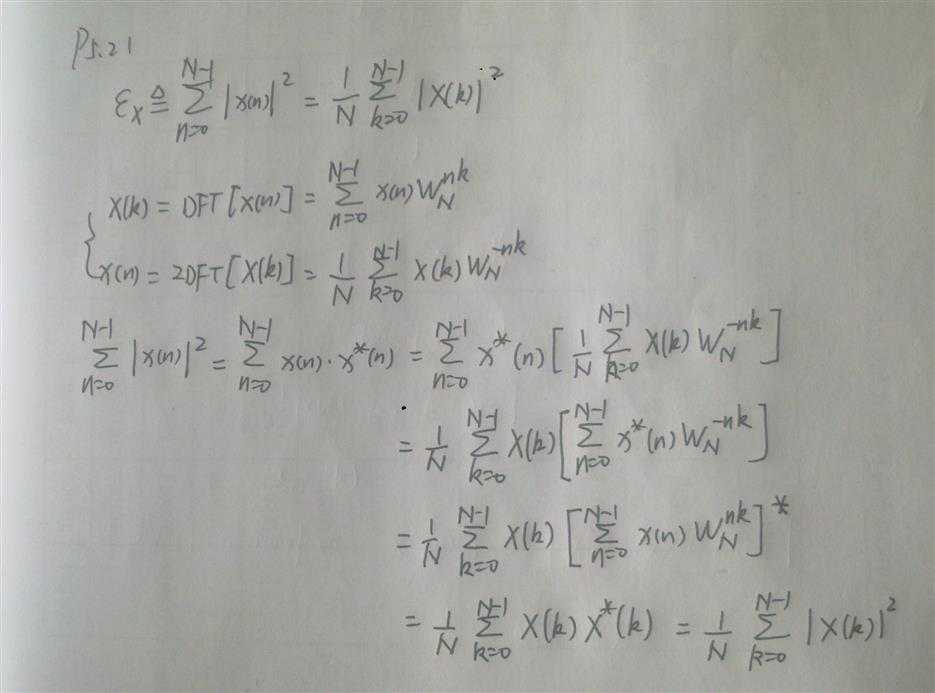 P5.21
ε_X ≜ \sum_{n=0}^{N-1} |x(n)|^2 = \frac{1}{N} \sum_{k=0}^{N-1} |X(k)|^2
X(k) = DFT[x(n)] = \sum_{n=0}^{N-1} x(n) W_N^{nk}
x(n) = IDFT[X(k)] = \frac{1}{N} \sum_{k=0}^{N-1} X(k) W_N^{-nk}
\sum_{n=0}^{N-1} |x(n)|^2 = \sum_{n=0}^{N-1} x(n) · x^*(n) = \sum_{n=0}^{N-1} x^*(n) [ \frac{1}{N} \sum_{k=0}^{N-1} X(k) W_N^{-nk} ]
= \frac{1}{N} \sum_{k=0}^{N-1} X(k) [ \sum_{n=0}^{N-1} x^*(n) W_N^{-nk} ]
= \frac{1}{N} \sum_{k=0}^{N-1} X(k) [ \sum_{n=0}^{N-1} x(n) W_N^{nk} ]^*
= \frac{1}{N} \sum_{k=0}^{N-1} X(k) X^*(k) = \frac{1}{N} \sum_{k=0}^{N-1} |X(k)|^2